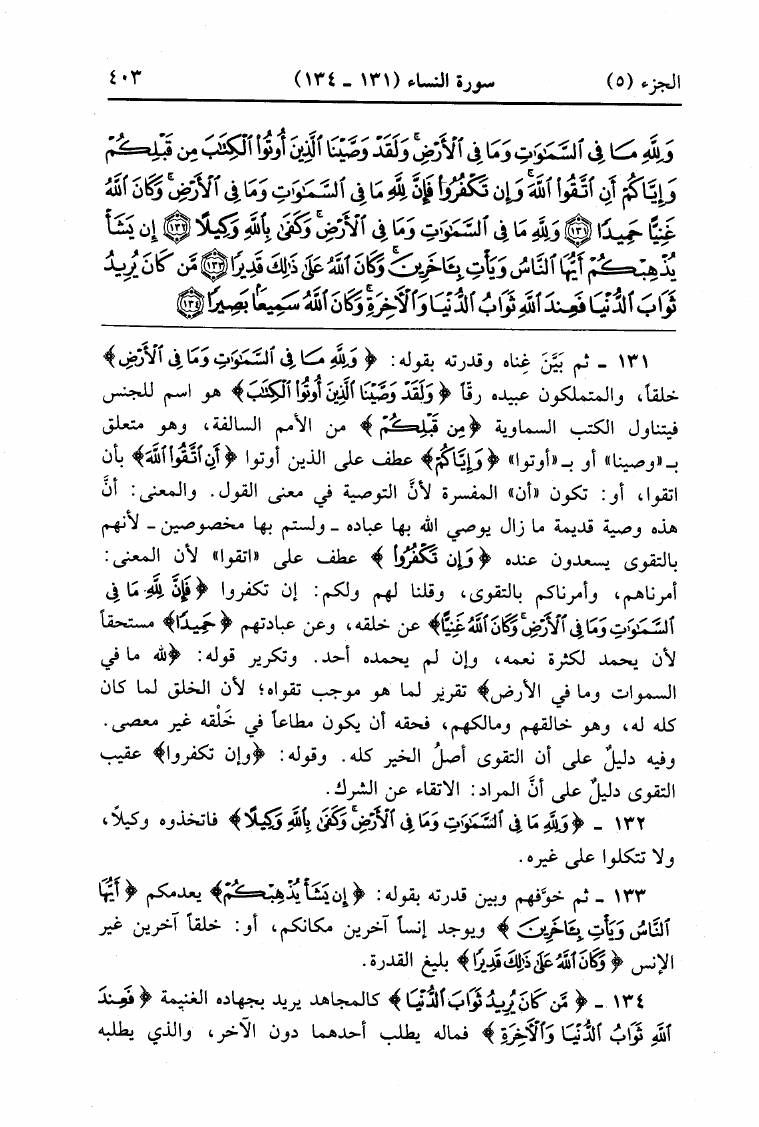 الجزء (٥) سورة النساء (١٣١ ـ ١٣٤) ٤٠٣
وَلِلَّهِ مَا فِى ٱلسَّمَٰوَٰتِ وَمَا فِى ٱلْأَرْضِ ۗ وَلَقَدْ وَصَّيْنَا ٱلَّذِينَ أُوتُوا۟ ٱلْكِتَٰبَ مِن قَبْلِكُمْ
وَإِيَّاكُمْ أَنِ ٱتَّقُوا۟ ٱللَّهَ ۚ وَإِن تَكْفُرُوا۟ فَإِنَّ لِلَّهِ مَا فِى ٱلسَّمَٰوَٰتِ وَمَا فِى ٱلْأَرْضِ ۚ وَكَانَ ٱللَّهُ
غَنِيًّا حَمِيدًا ﴿١٣١﴾ وَلِلَّهِ مَا فِى ٱلسَّمَٰوَٰتِ وَمَا فِى ٱلْأَرْضِ ۚ وَكَفَىٰ بِٱللَّهِ وَكِيلًا ﴿١٣٢﴾ إِن يَشَأْ
يُذْهِبْكُمْ أَيُّهَا ٱلنَّاسُ وَيَأْتِ بِـَٔاخَرِينَ ۚ وَكَانَ ٱللَّهُ عَلَىٰ ذَٰلِكَ قَدِيرًا ﴿١٣٣﴾ مَّن كَانَ يُرِيدُ
ثَوَابَ ٱلدُّنْيَا فَعِندَ ٱللَّهِ ثَوَابُ ٱلدُّنْيَا وَٱلْءَاخِرَةِ ۚ وَكَانَ ٱللَّهُ سَمِيعًۢا بَصِيرًا ﴿١٣٤﴾
١٣١ ـ ثم بَيَّنَ غِناه وقدرته بقوله: ﴿وَلِلَّهِ مَا فِى ٱلسَّمَٰوَٰتِ وَمَا فِى ٱلْأَرْضِ﴾
خلقاً، والمتملكون عبيده رقّاً ﴿وَلَقَدْ وَصَّيْنَا ٱلَّذِينَ أُوتُوا۟ ٱلْكِتَٰبَ﴾ هو اسم للجنس
فيتناول الكتب السماوية ﴿مِن قَبْلِكُمْ﴾ من الأمم السالفة، وهو متعلق
بـ«وصينا» أو بـ«أوتوا» ﴿وَإِيَّاكُمْ﴾ عطف على الذين أوتوا ﴿أَنِ ٱتَّقُوا۟ ٱللَّهَ﴾ بأن
اتقوا، أو: تكون «أن» المفسرة لأنَّ التوصية في معنى القول. والمعنى: أنَّ
هذه وصية قديمة ما زال يوصي الله بها عباده ـ ولستم بها مخصوصين ـ لأنهم
بالتقوى يسعدون عنده ﴿وَإِن تَكْفُرُوا۟﴾ عطف على «اتقوا» لأن المعنى:
أمرناهم، وأمرناكم بالتقوى، وقلنا لهم ولكم: إن تكفروا ﴿فَإِنَّ لِلَّهِ مَا فِى
ٱلسَّمَٰوَٰتِ وَمَا فِى ٱلْأَرْضِ ۚ وَكَانَ ٱللَّهُ غَنِيًّا﴾ عن خلقه، وعن عبادتهم ﴿حَمِيدًا﴾ مستحقاً
لأن يحمد لكثرة نعمه، وإن لم يحمده أحد. وتكرير قوله: ﴿لله ما في
السموات وما في الأرض﴾ تقرير لما هو موجب تقواه؛ لأن الخلق لما كان
كله له، وهو خالقهم ومالكهم، فحقه أن يكون مطاعاً في خَلْقه غير معصى.
وفيه دليلٌ على أن التقوى أصلُ الخير كله. وقوله: ﴿وإن تكفروا﴾ عقيب
التقوى دليلٌ على أنَّ المراد: الاتقاء عن الشرك.
١٣٢ ـ ﴿وَلِلَّهِ مَا فِى ٱلسَّمَٰوَٰتِ وَمَا فِى ٱلْأَرْضِ ۚ وَكَفَىٰ بِٱللَّهِ وَكِيلًا﴾ فاتخذوه وكيلاً،
ولا تتكلوا على غيره.
١٣٣ ـ ثم خوَّفهم وبين قدرته بقوله: ﴿إِن يَشَأْ يُذْهِبْكُمْ﴾ يعدمكم ﴿أَيُّهَا
ٱلنَّاسُ وَيَأْتِ بِـَٔاخَرِينَ﴾ ويوجد إنساً آخرين مكانكم، أو: خلقاً آخرين غير
الإنس ﴿وَكَانَ ٱللَّهُ عَلَىٰ ذَٰلِكَ قَدِيرًا﴾ بليغ القدرة.
١٣٤ ـ ﴿مَّن كَانَ يُرِيدُ ثَوَابَ ٱلدُّنْيَا﴾ كالمجاهد يريد بجهاده الغنيمة ﴿فَعِندَ
ٱللَّهِ ثَوَابُ ٱلدُّنْيَا وَٱلْءَاخِرَةِ﴾ فماله يطلب أحدهما دون الآخر، والذي يطلبه